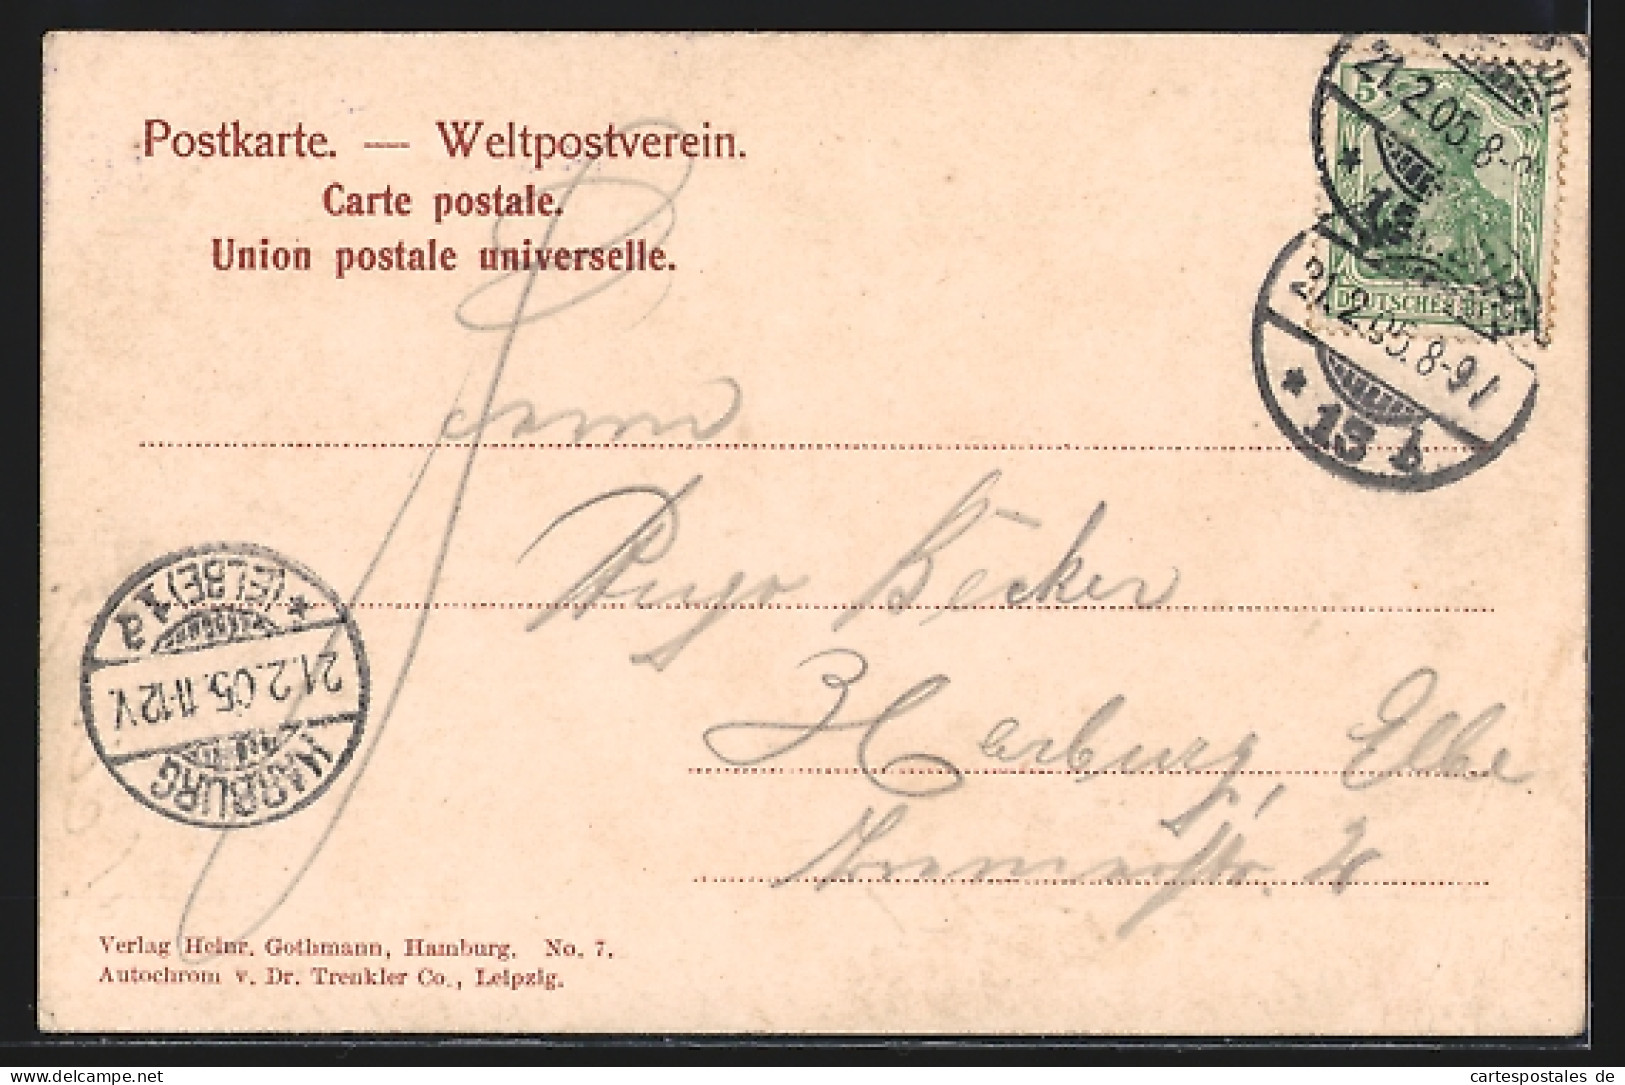 Postkarte. — Weltpostverein.
Carte postale.
Union postale universelle.
5
DEUTSCHES REICH
21.2.05.8-9
21.2.05.8-9V
* 13 b
Herrn
Hugo Bēcker
Harburg, Elbe
Bremerstr.
HARBURG
21.2.05.11-12V.
* (ELBE) 1a
Verlag Heinr. Gothmann, Hamburg. No. 7.
Autochrom v. Dr. Trenkler Co., Leipzig.
delcampe.net
cartespostales de